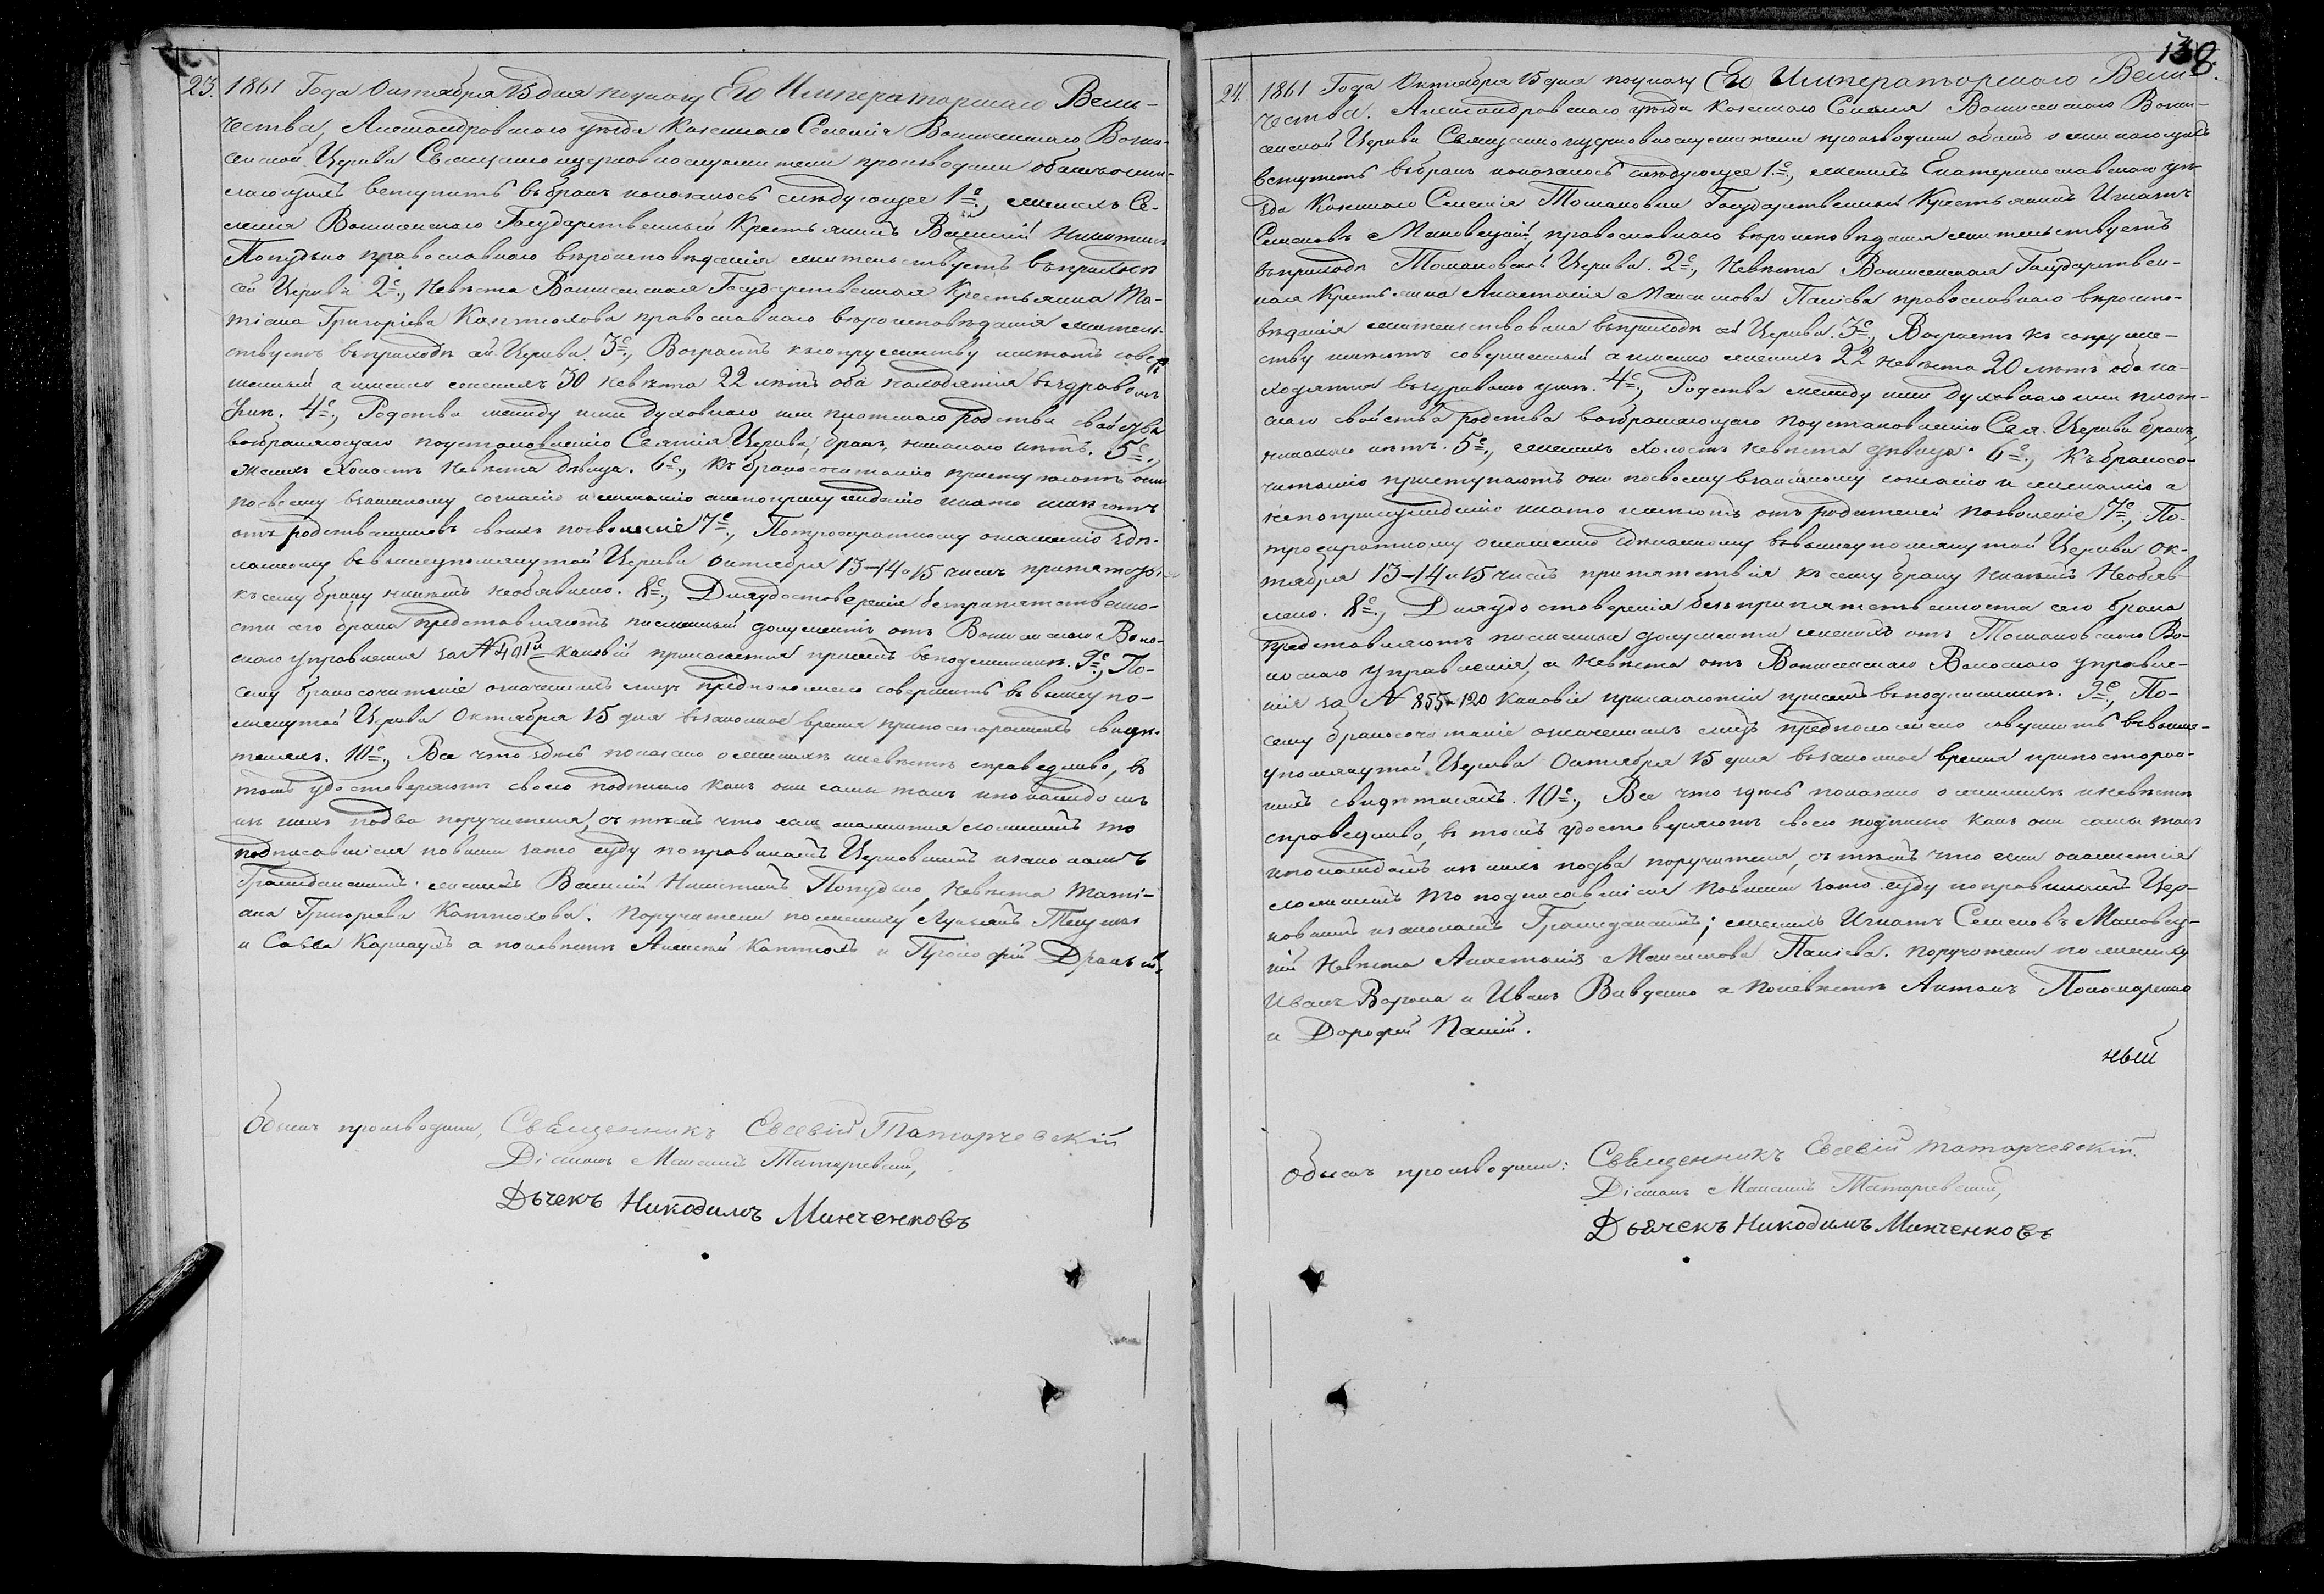 23. 1861 Года Октября 15 дня по указу Его Императорскаго Вели-
чества, Александровскаго уѣзда Казеннаго Селенія Воскресенскаго Воскре-
сенской Церкви Священноцерковнослужители производили обыскъ о же-
лающихъ вступить въ бракъ и оказалось слѣдующее 1е., женихъ Се-
ленія Государственный Крестьянинъ Василій Никитинъ
Попудько православнаго вѣроисповѣданія жительствуетъ въ приходѣ
сей Церкви 2е., Невѣста Государственная Крестьянка Та-
тіана Григоріева Каптюхова православнаго вѣроисповѣданія житель-
ствуетъ въ приходѣ сей Церкви. 3е., Возрастъ къ супружеству имѣютъ совер-
шенный а именно женихъ 30 невѣста 22 лѣтъ оба находятся въ здравомъ
умѣ. 4е., Родства между ими духовнаго или плотскаго родства свойства
возбраняющаго по установленію Святыя Церкви, бракъ, никакаго нѣтъ. 5е.,
женихъ холостъ невѣста дѣвица. 6е., Къ бракосочетанію приступаютъ они
по своему взаимному согласію и желанію а не по принужденію и на то имѣютъ
отъ родственниковъ своихъ позволеніе 7е., По троекратному оглашенію здѣ-
ланному въ вышеупомянутой Церкви октября 13–14 и 15 чиселъ препятствія
къ сему браку никѣмъ не объявлено. 8е., Для удостоверенія безпрепятственно-
сти сего брака представляютъ письменный документъ отъ Воло-
снаго управленія за № 401й каковый прилагается присемъ въ подлинникѣ. 9е., По-
сему бракосочетаніе означенныхъ лицъ предположено совершить въ вышеупо-
мянутой Церкви Октября 15 дня въ законное время при постороннихъ свидѣ-
теляхъ. 10е., Все что здѣсь показано о женихѣ и невѣстѣ справедливо, въ
томъ удостоверяютъ своею подписью какъ они сами такъ и по каждомъ
изъ нихъ по два поручителя, съ тѣмъ что если окажется ложнымъ то
подписавшіеся повинны за то суду по правиламъ Церковнымъ и законамъ
Гражданскимъ. женихъ Василій Никитинъ Попудько, Невѣста Таті-
ана Григорьева Каптюхова. Поручители по женихѣ
и Савва а по невѣстѣ Алексѣй Каптюхъ и Прокофій
Обыскъ производили, Священникъ Евсевій Татарчевскій
Діаконъ Татарчевскій,
Дьчекъ Никодимъ Минченковъ
138.
24. 1861 Года Октября 15 дня по указу Его Императорскаго Вели-
чества. Александровскаго уѣзда казеннаго Селенія Воскресенскаго Воскре-
сенской Церкви Священноцерковнослужители производили обыскъ о желающихъ
вступить въ бракъ и оказалось слѣдующее 1.е., женихъ Екатеринославскаго уѣ-
зда Казеннаго Селенія Томаковки Государственный Крестьянинъ Игнатъ
Семеновъ православнаго вѣроисповѣданія жительствуетъ
въ приходѣ Томаковской Церкви. 2е., Невѣста Государствен-
ная Крестьянка Анастасія Максимова Паліева православнаго вѣроиспо-
вѣданія жительствовала въ приходѣ сей Церкви. 3е., Возрастъ къ супруже-
ству имѣютъ совершенный а именно женихъ 22 невѣста 20 лѣтъ оба на-
ходятся въ здравомъ умѣ. 4е., Родства между ими духовнаго или плот-
скаго свойства родства возбраняющаго по установленію Свя. Церкви бракъ,
никакаго нѣтъ. 5е., женихъ холостъ невѣста дѣвица. 6е., Къ бракосо-
читанію приступаютъ они по своему взаимному согласію и желанію а
не по принужденію и на то имѣютъ отъ родителей позволеніе 7е., По-
троекратному оглашенію сдѣланному въ вышеупомянутой Церкви Ок-
тября 13–14 и 15 числъ препятствія къ сему браку никѣмъ не объяв-
лено. 8е., Для удостоверенія безпрепятственности сего брака
представляютъ письменныя документы женихъ отъ Томаковскаго Во-
лоснаго управленія, а невѣста отъ Волоснаго управле-
нія за № 855 и 120 каковіи прилагаются присемъ въ подлинникѣ. 9е., По-
сему бракосочетаніе означенныхъ лицъ предположено совершить въ выше-
упомянутой Церкви Октября 15 дня въ законное время при посторон-
нихъ свидѣтеляхъ. 10е., Все что здѣсь показано о женихѣ и невѣстѣ
справедливо, въ томъ удостоверяютъ своею подписью какъ они сами такъ
и по каждомъ изъ нихъ по два поручителя, съ тѣмъ что если окажется
ложнымъ то подписавшіеся повинны за то суду по правиламъ Цер-
ковнымъ и законамъ Гражданскимъ; женихъ Игнатъ Семеновъ
Невѣста Анастасія Максимова Паліева. Поручители по женихѣ
Иванъ Ворона и Иванъ а по невѣстѣ Антонъ Пономаренко
и Дорофей Палій.
ный
Обыскъ производили: Священникъ Евсевій Татарчевскій.
Діаконъ Татарчевскій,
Дьячекъ Никодимъ Минченковъ